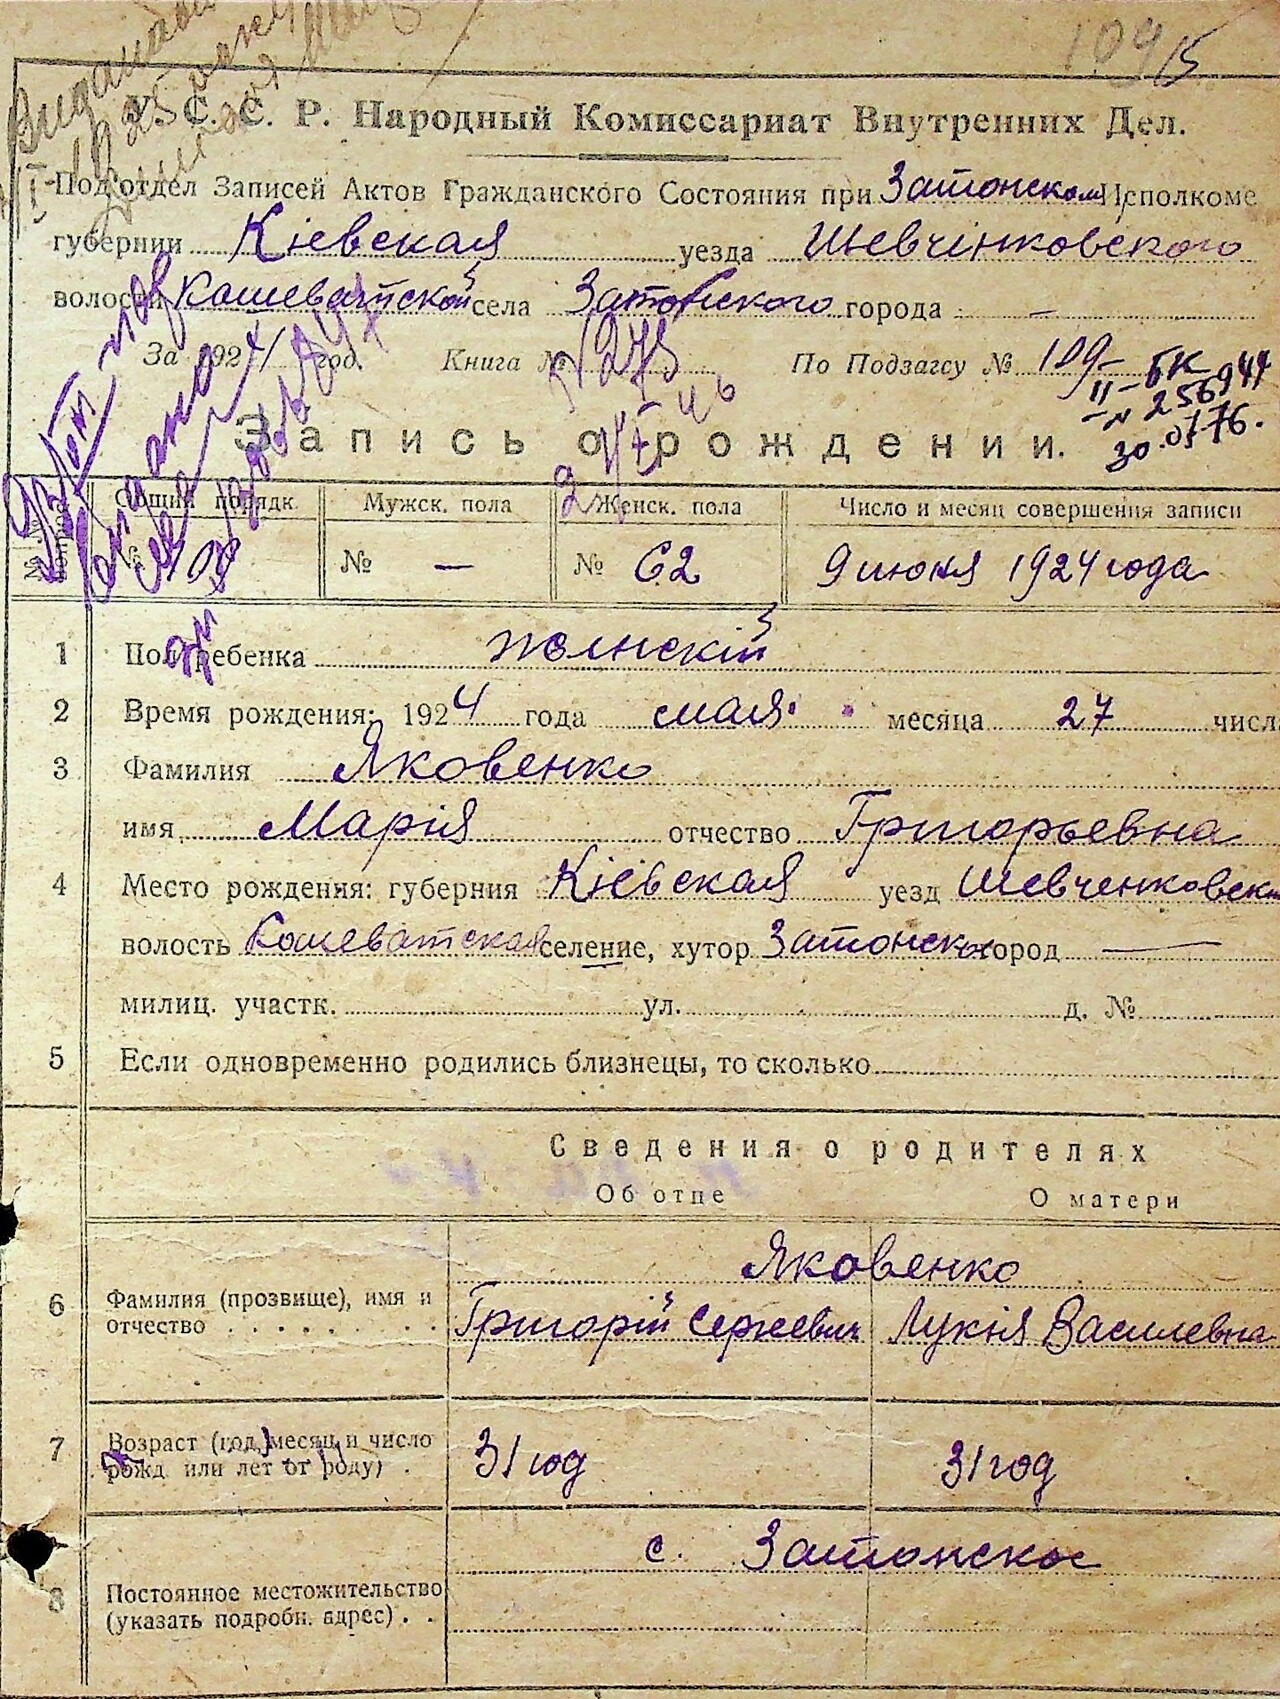 109 15
У. С. С. Р. Народный Комиссариат Внутренних Дел.
Под'отдел Записей Актов Гражданского Состояния при Затонском Исполкоме
губернии Кіевская уезда Шевчінковского
волости Кошеватской села Затонского города —
За 1924 год. Книга № По Подзагсу № 109
II-БК
-№ 256944
30.07.76.
№ 275
Запись о рождении.
Общий порядк. Мужск. пола Женск. пола Число и месяц совершения записи
№ 109 № — № 62 9 июня 1924 года
1 Пол ребенка женскій
2 Время рождения: 1924 года мая месяца 27 числа
3 Фамилия Яковенко
имя Марія отчество Григорьевна
4 Место рождения: губерния Кіевская уезд Шевченковск
волость Кошеватская селение, хутор Затонское город —
милиц. участк. ул. д. №
5 Если одновременно родились близнецы, то сколько
Сведения о родителях
Об отце О матери
Яковенко
6 Фамилия (прозвище), имя и
отчество Григорій Сергеевич Лукія Василевна
7 Возраст (год, месяц и число
рожд. или лет от роду) 31 год 31 год
с. Затонское
8 Постоянное местожительство
(указать подробн. адрес)